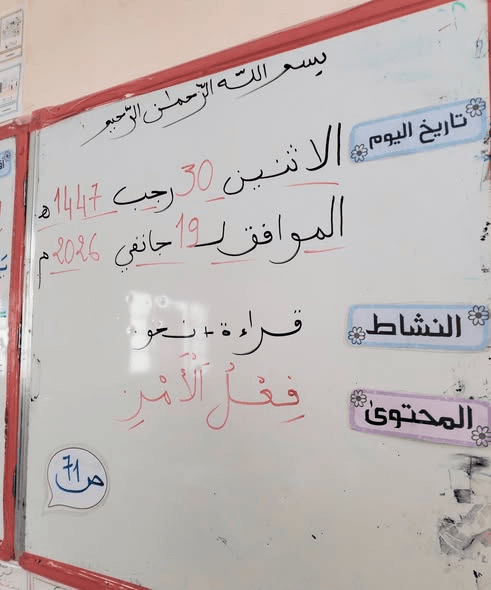 بسم الله الرحمان الرحيم
تاريخ اليوم
الاثنين 30 رجب 1447 هـ
الموافق لـ 19 جانفي 2026 م
النشاط
قراءة + نحو
المحتوى
فِعْلُ الْأَمْرِ
ص 71